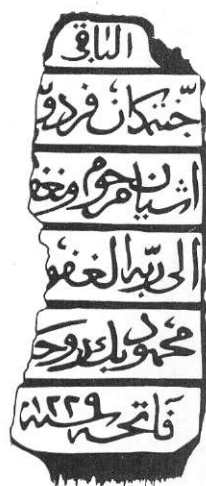 الباقى
جنتمكان فردو
اشيان مرحوم ومغفو
الى ربه الغفو
محمود بك روحـ
فاتحه سنه ١٢٢٩